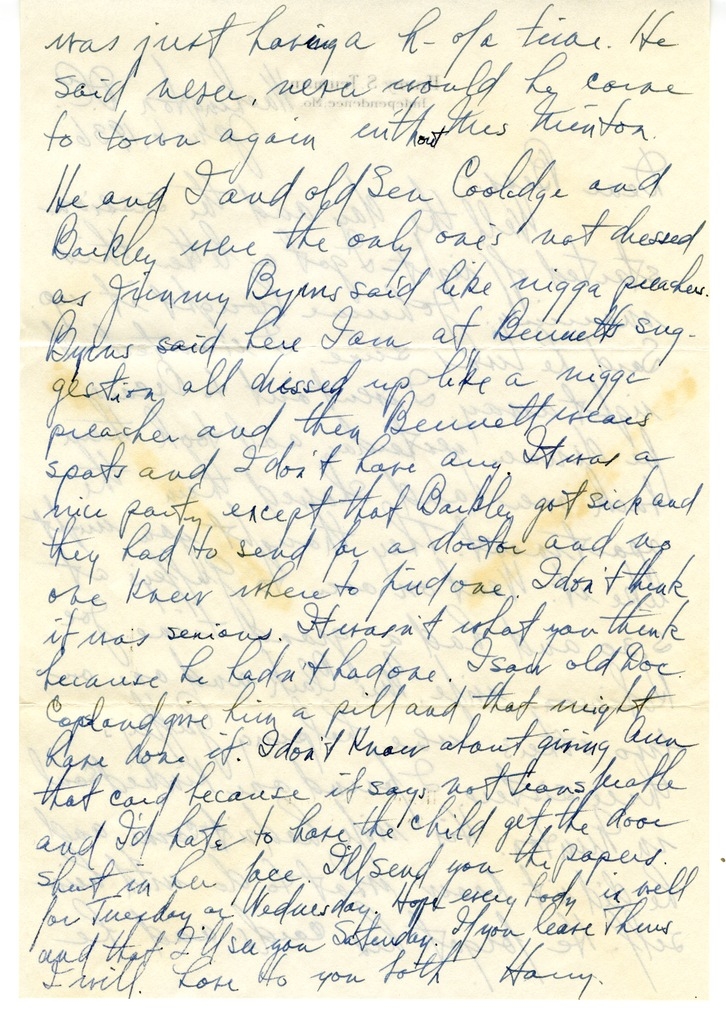 was just having a h- of a time. He
said never, never would he come
to town again without this Minton.
He and I and old Sen Coolidge and
Barkley were the only one's not dressed
as Jimmy Byrns said like nigga preachers.
Byrns said here I am at Bennetts sug-
gestion all dressed up like a nigga
preacher and then Bennett wears
spats and I don't have any. It was a
nice party except that Barkley got sick and
they had to send for a doctor and no
one knew where to find one. I don't think
it was serious. It wasn't what you think
because he hadn't had one. I saw old Doc.
Copland give him a pill and that might
have done it. I don't know about giving Ann
that card because it says not transferable
and I'd hate to have the child get the door
shut in her face. I'll send you the papers.
for Tuesday or Wednesday. Hope every body is well
and that I'll see you Saturday. If you leave Thurs
I will. Love to you both Harry.